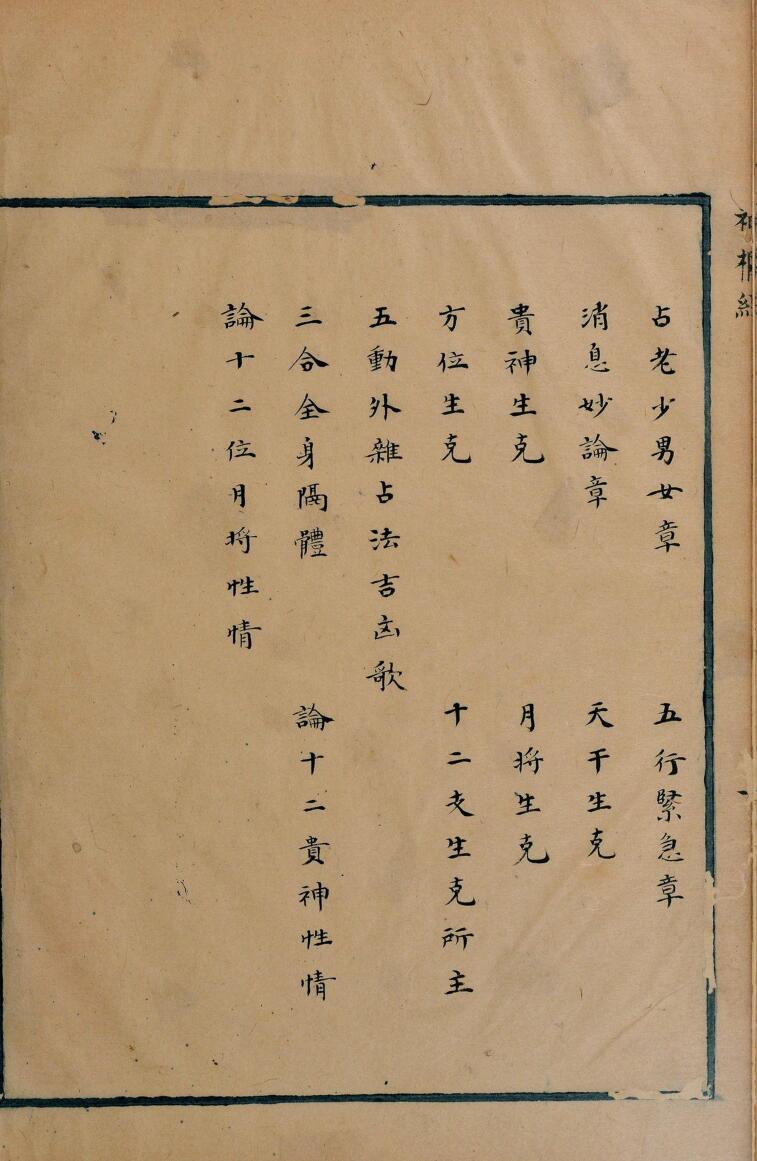 占老少男女章　五行緊急章
消息妙論章　天干生克
貴神生克　月將生克
方位生克　十二支生克所主
五動外雜占法吉凶歌
三合全身隔體　論十二貴神性情
論十二位月將性情